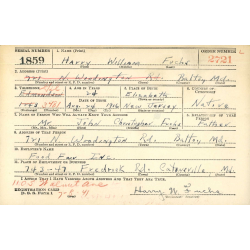 SERIAL NUMBER 1. NAME (Print) ORDER NUMBER
1859 Harry William Fuchs 2721
2. ADDRESS (Print)
721 N. Woodington Rd. Balto, Md.
3. TELEPHONE 4. AGE IN YEARS 5. PLACE OF BIRTH 6. COUNTRY OF CITIZENSHIP
Edmondson 24 Elizabeth
DATE OF BIRTH
Apr 24 1916 New Jersey Native
7. NAME OF PERSON WHO WILL ALWAYS KNOW YOUR ADDRESS 8. RELATIONSHIP OF THAT PERSON
Mr. John Christopher Fuchs Father
9. ADDRESS OF THAT PERSON
721 N. Woodington Rd. Balto, Md.
10. EMPLOYER'S NAME
Food Fair Inc.
11. PLACE OF EMPLOYMENT OR BUSINESS
743-47 Fredrick Rd. Catonsville Md.
I AFFIRM THAT I HAVE VERIFIED ABOVE ANSWERS AND THAT THEY ARE TRUE.
REGISTRATION CARD
D. S. S. Form 1
Harry W. Fuchs